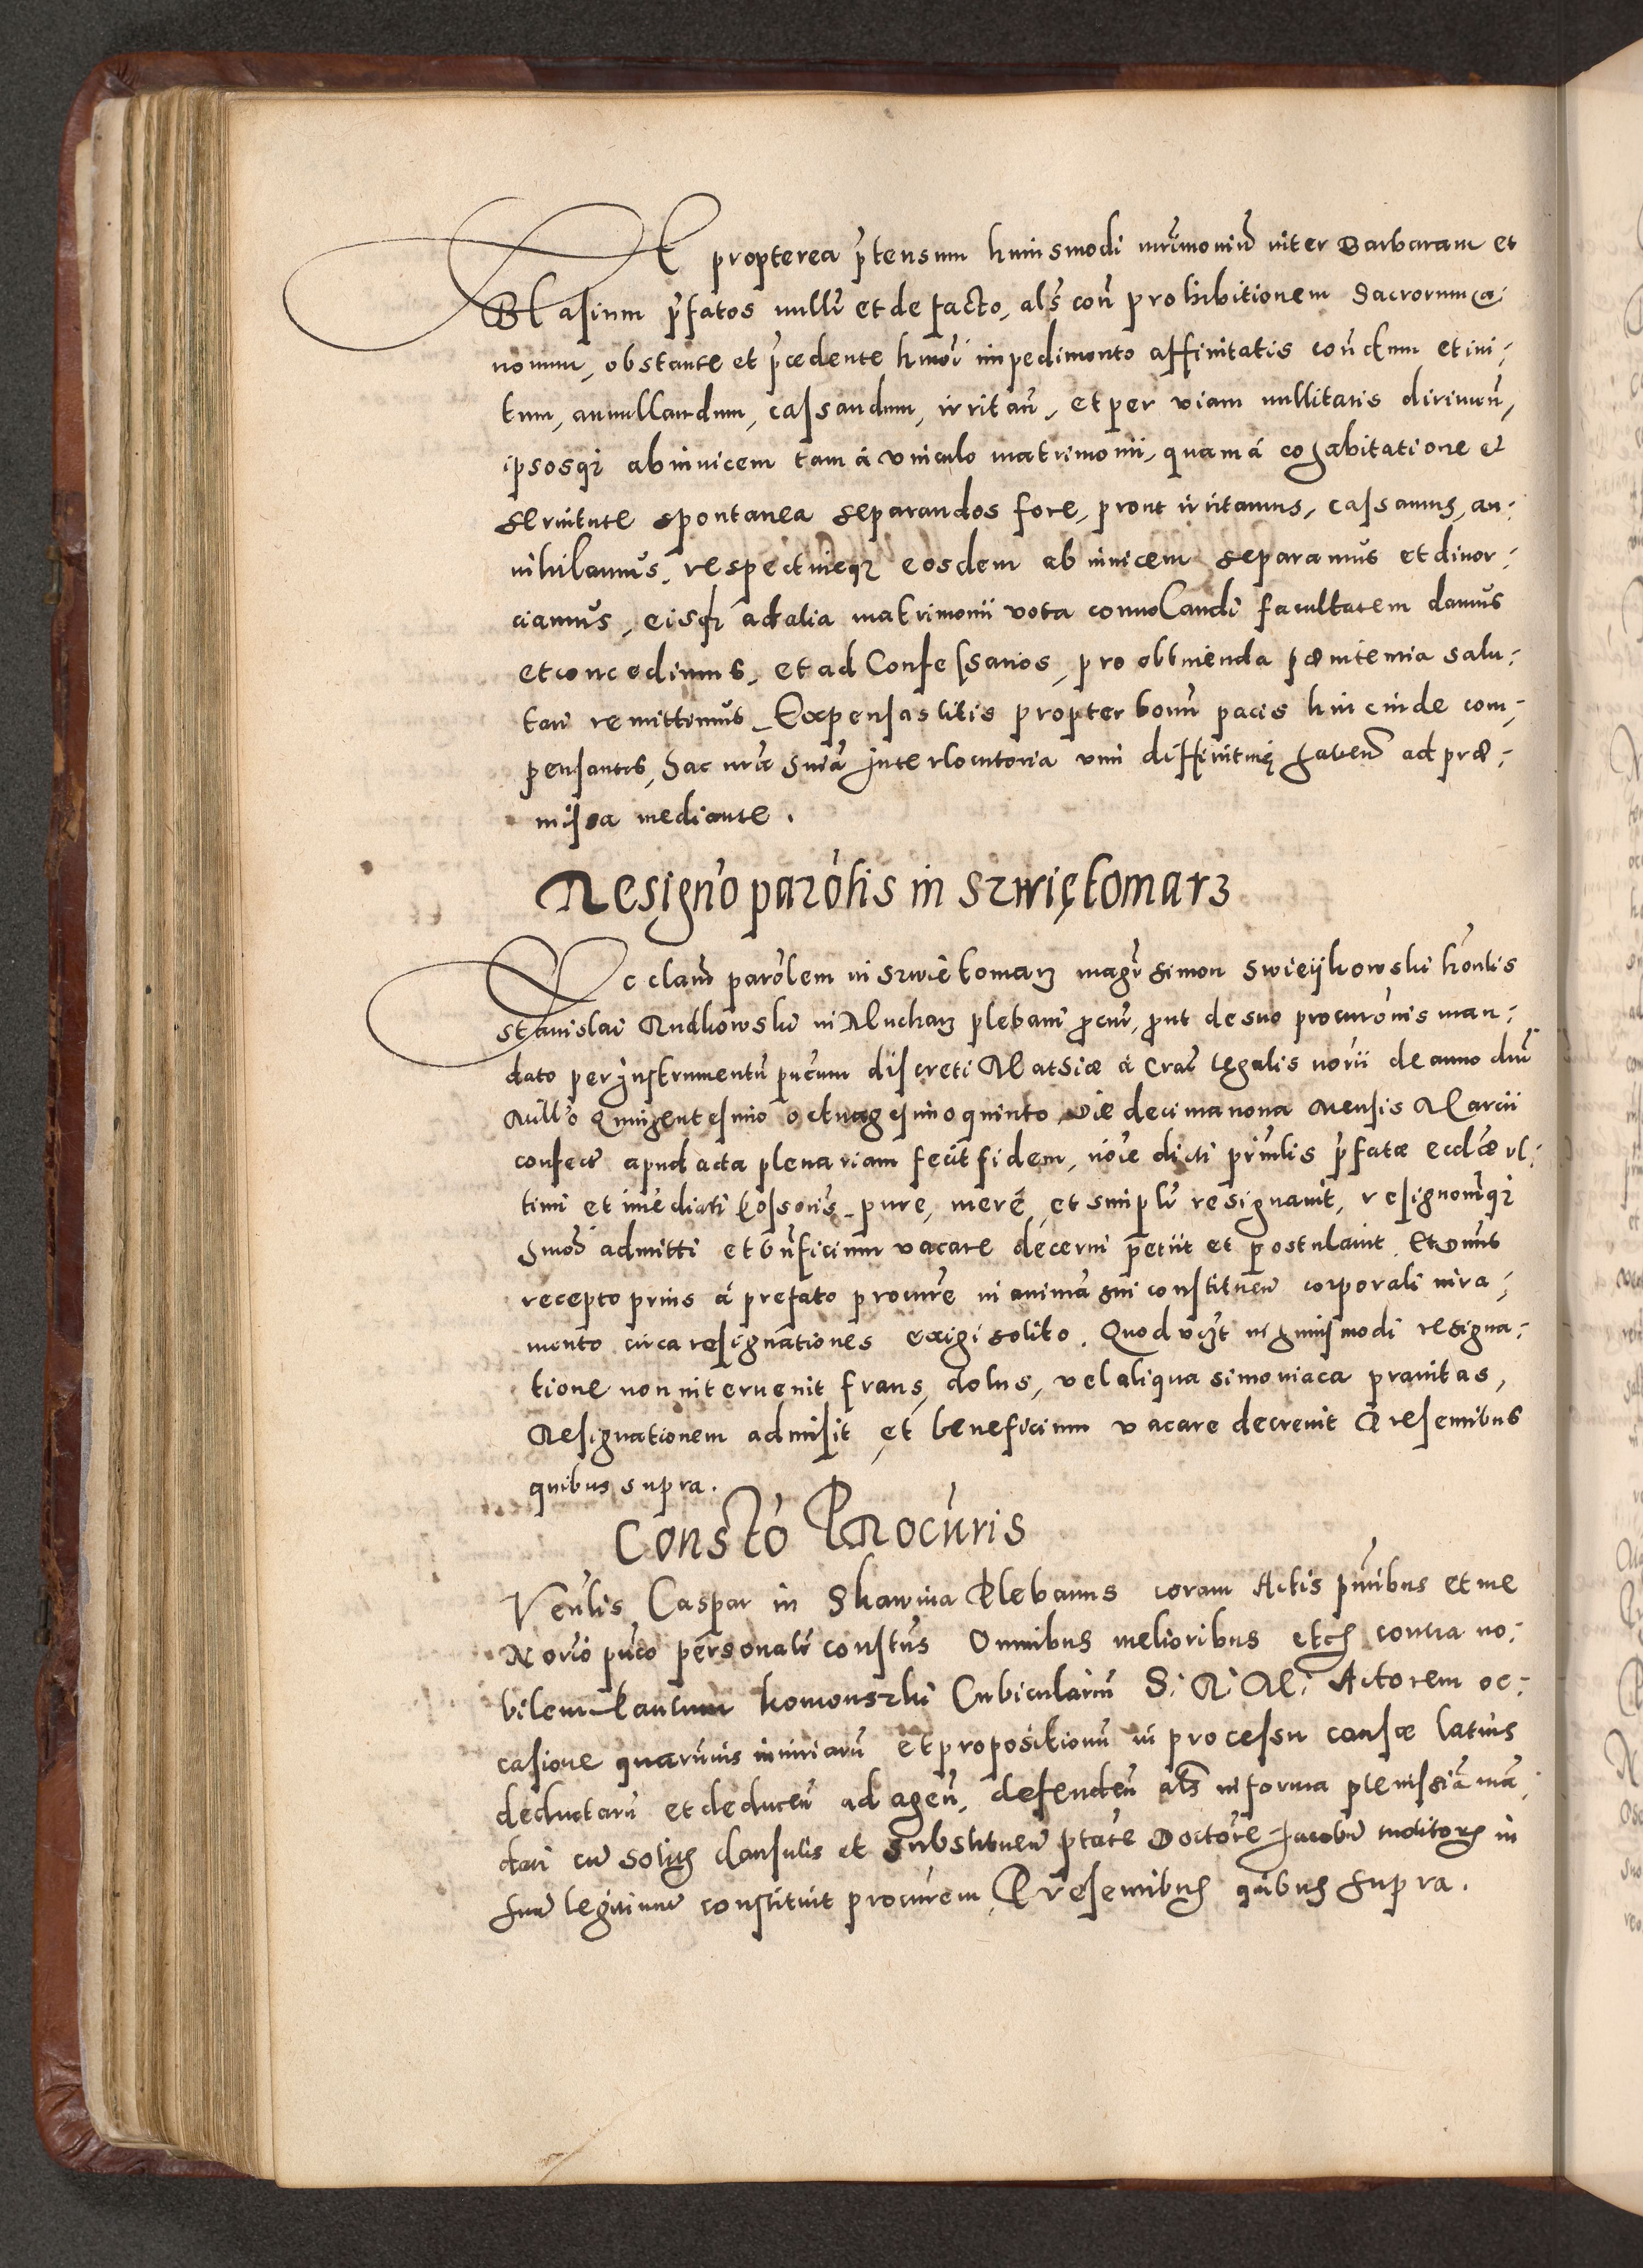 Et propterea p̃tensum huiusmodi mr̃imoniũ inter Barbaram et
Blasium p̃fatos nullũ et de facto, als̃ con̄ prohibitionem Sacrorum Ca:
nonum, obstante et p̃cedente hmoi impedimento affinitatis con̄ctum et ini:
tum, annullandum, cassandum, irritan̄, et per viam nullitatis dirimen̄,
ipsosq3 abinuicem tam à vinculo matrimonii, quam á cohabitatione et
seruitute spontanea separandos fore, prout irritamus, cassamus, an:
nihilamus, respectiueq3 eosdem ab inuicem separamus et diuor:
ciamus, eisq3 ad alia matrimonii vota conuolandi facultatem damus
et concedimus, et ad Confessarios, pro obtinenda pœnitentia salu:
tari remittimus. Expensas litis propter bonũ pacis hinc inde com:
pensantes, hac nr̃a sn̄ia Interlocutoria vim diffinitiuę haben̄ ad præ:
missa mediante.
Resign̄o parõlis in Szwiętomarz
Ec clam̄ parõlem in Szwiętomarz magr̃ Simon Swieijkowski hon̄lis
Stanislai Rudkowski in Mucharz plebani p̱cur̃, p̱ut de suo procurõnis man:
dato per Instrumentũ pub̃cum discreti Matsiæ à Crać Legalis nor̃ii de anno dn̄i
Mill̃o Quingentesimo octuagesimo quinto, die decima nona Mensis Marcii
confectũ apud acta plenariam fecit fidem, nõie dicti prin̄lis p̃fatæ eccl̃æ vl:
timi et im̃ediati possoris̃, pure, merè, et simplr̃ resignauit, resignonẽq3
hmõi admitti et bn̄ficium vacare decerni petiit et postulauit. Et Dnũs
recepto prius á prefato procur̃e in animã sui constituen̄ corporali iura:
mento circa resignationes exigi solito. Quod vidz̃t in huiusmodi resigna:
tione non interuenit fraus, dolus, vel aliqua simoniaca prauitas,
Resignationem admisit et beneficium vacare decreuit Presentibus
quibus supra.
Constõ Procũris
Ven̄lis Caspar in Skawina Plebanus coram Actis p̃ntibus et me
Nor̃io pub̃co personalr̃ constũs Omnibus melioribus etc̃ contra no:
bilem Komonszki Cubicularium S. R. M. Actorem oc:
casione quarũuis iniuriarũ et propositionũ in processu causæ latius
deductarũ et deducen̄ ad agen̄, defenden̄ als̃ in forma plenissĩa mã
dati cũ solitis clausulis et substituen̄ ptate Doctorẽ Jacobũ in
suũ legitimũ constituit procur̃em, Presentibus quibus supra.